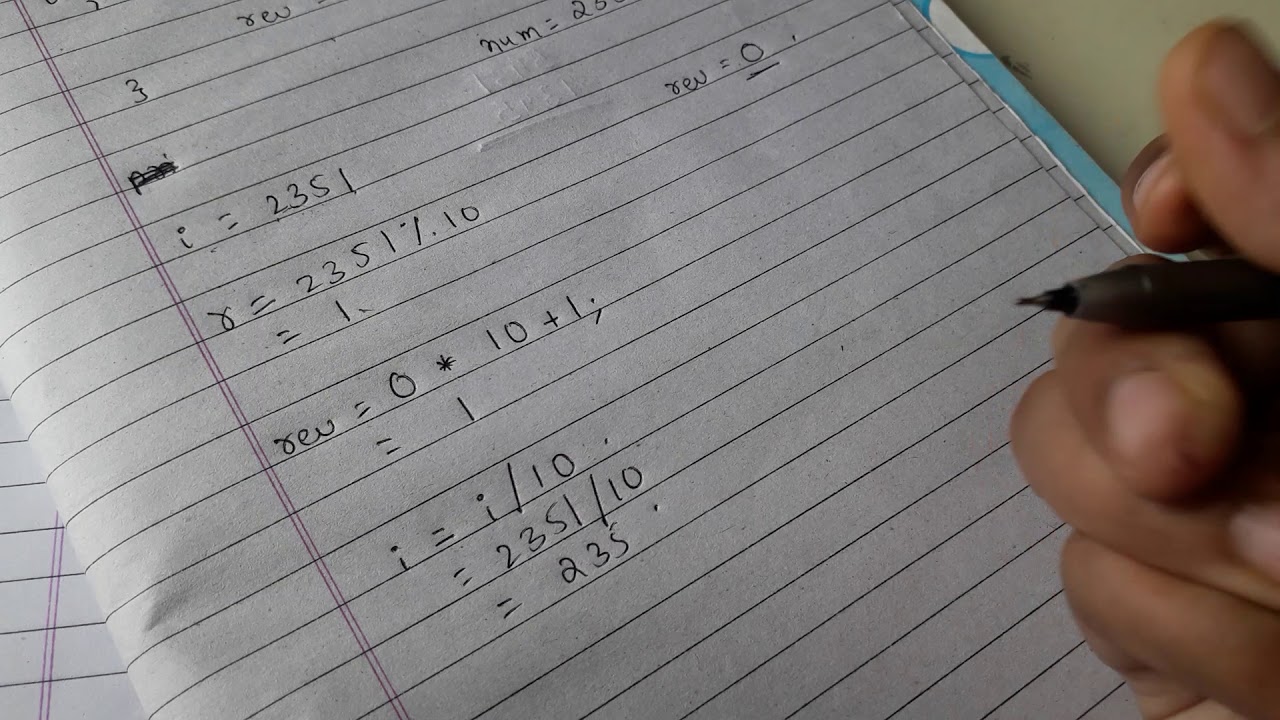 rev =
num = 23
}
rev = 0
i = 2351
r = 2351 % 10
= 1
rev = 0 * 10 + 1;
= 1
i = i/10
= 2351/10
= 235